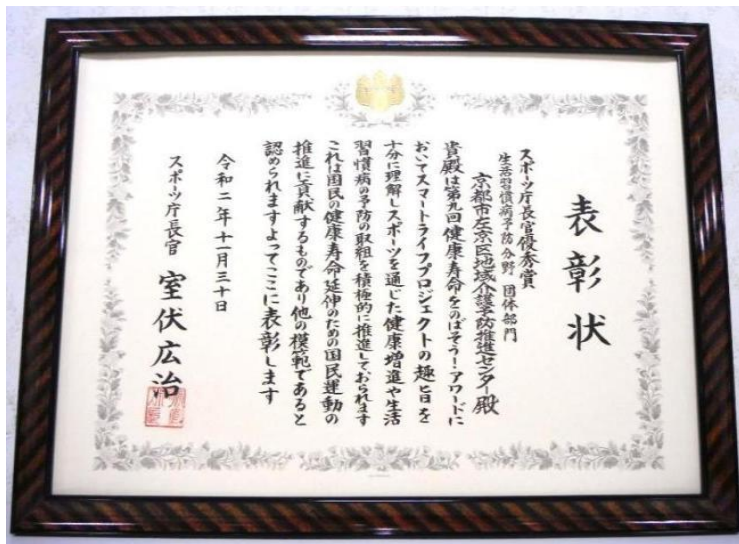 表彰状
スポーツ庁長官優秀賞
生活習慣病予防分野 団体部門
京都市左京区地域介護予防推進センター殿
貴殿は第九回健康寿命をのばそう!アワードに
おいてスマートライフプロジェクトの趣旨を
十分に理解しスポーツを通じた健康増進や生活
習慣病の予防の取組を積極的に推進しておられます
これは国民の健康寿命延伸のための国民運動の
推進に貢献するものであり他の模範であると
認められますよってここに表彰します
令和二年十一月三十日
スポーツ庁長官 室伏広治